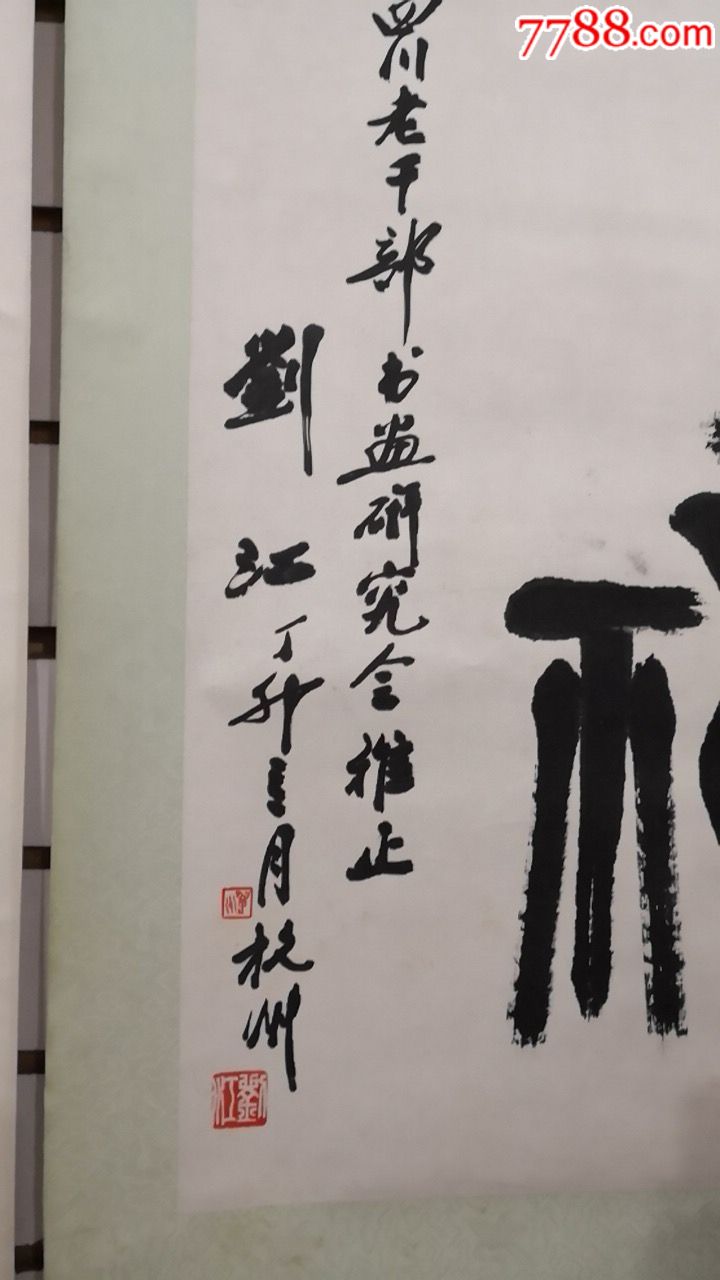 7788.com
四川老干部书画研究会雅正
劉江丁卯三月杭州
劉江